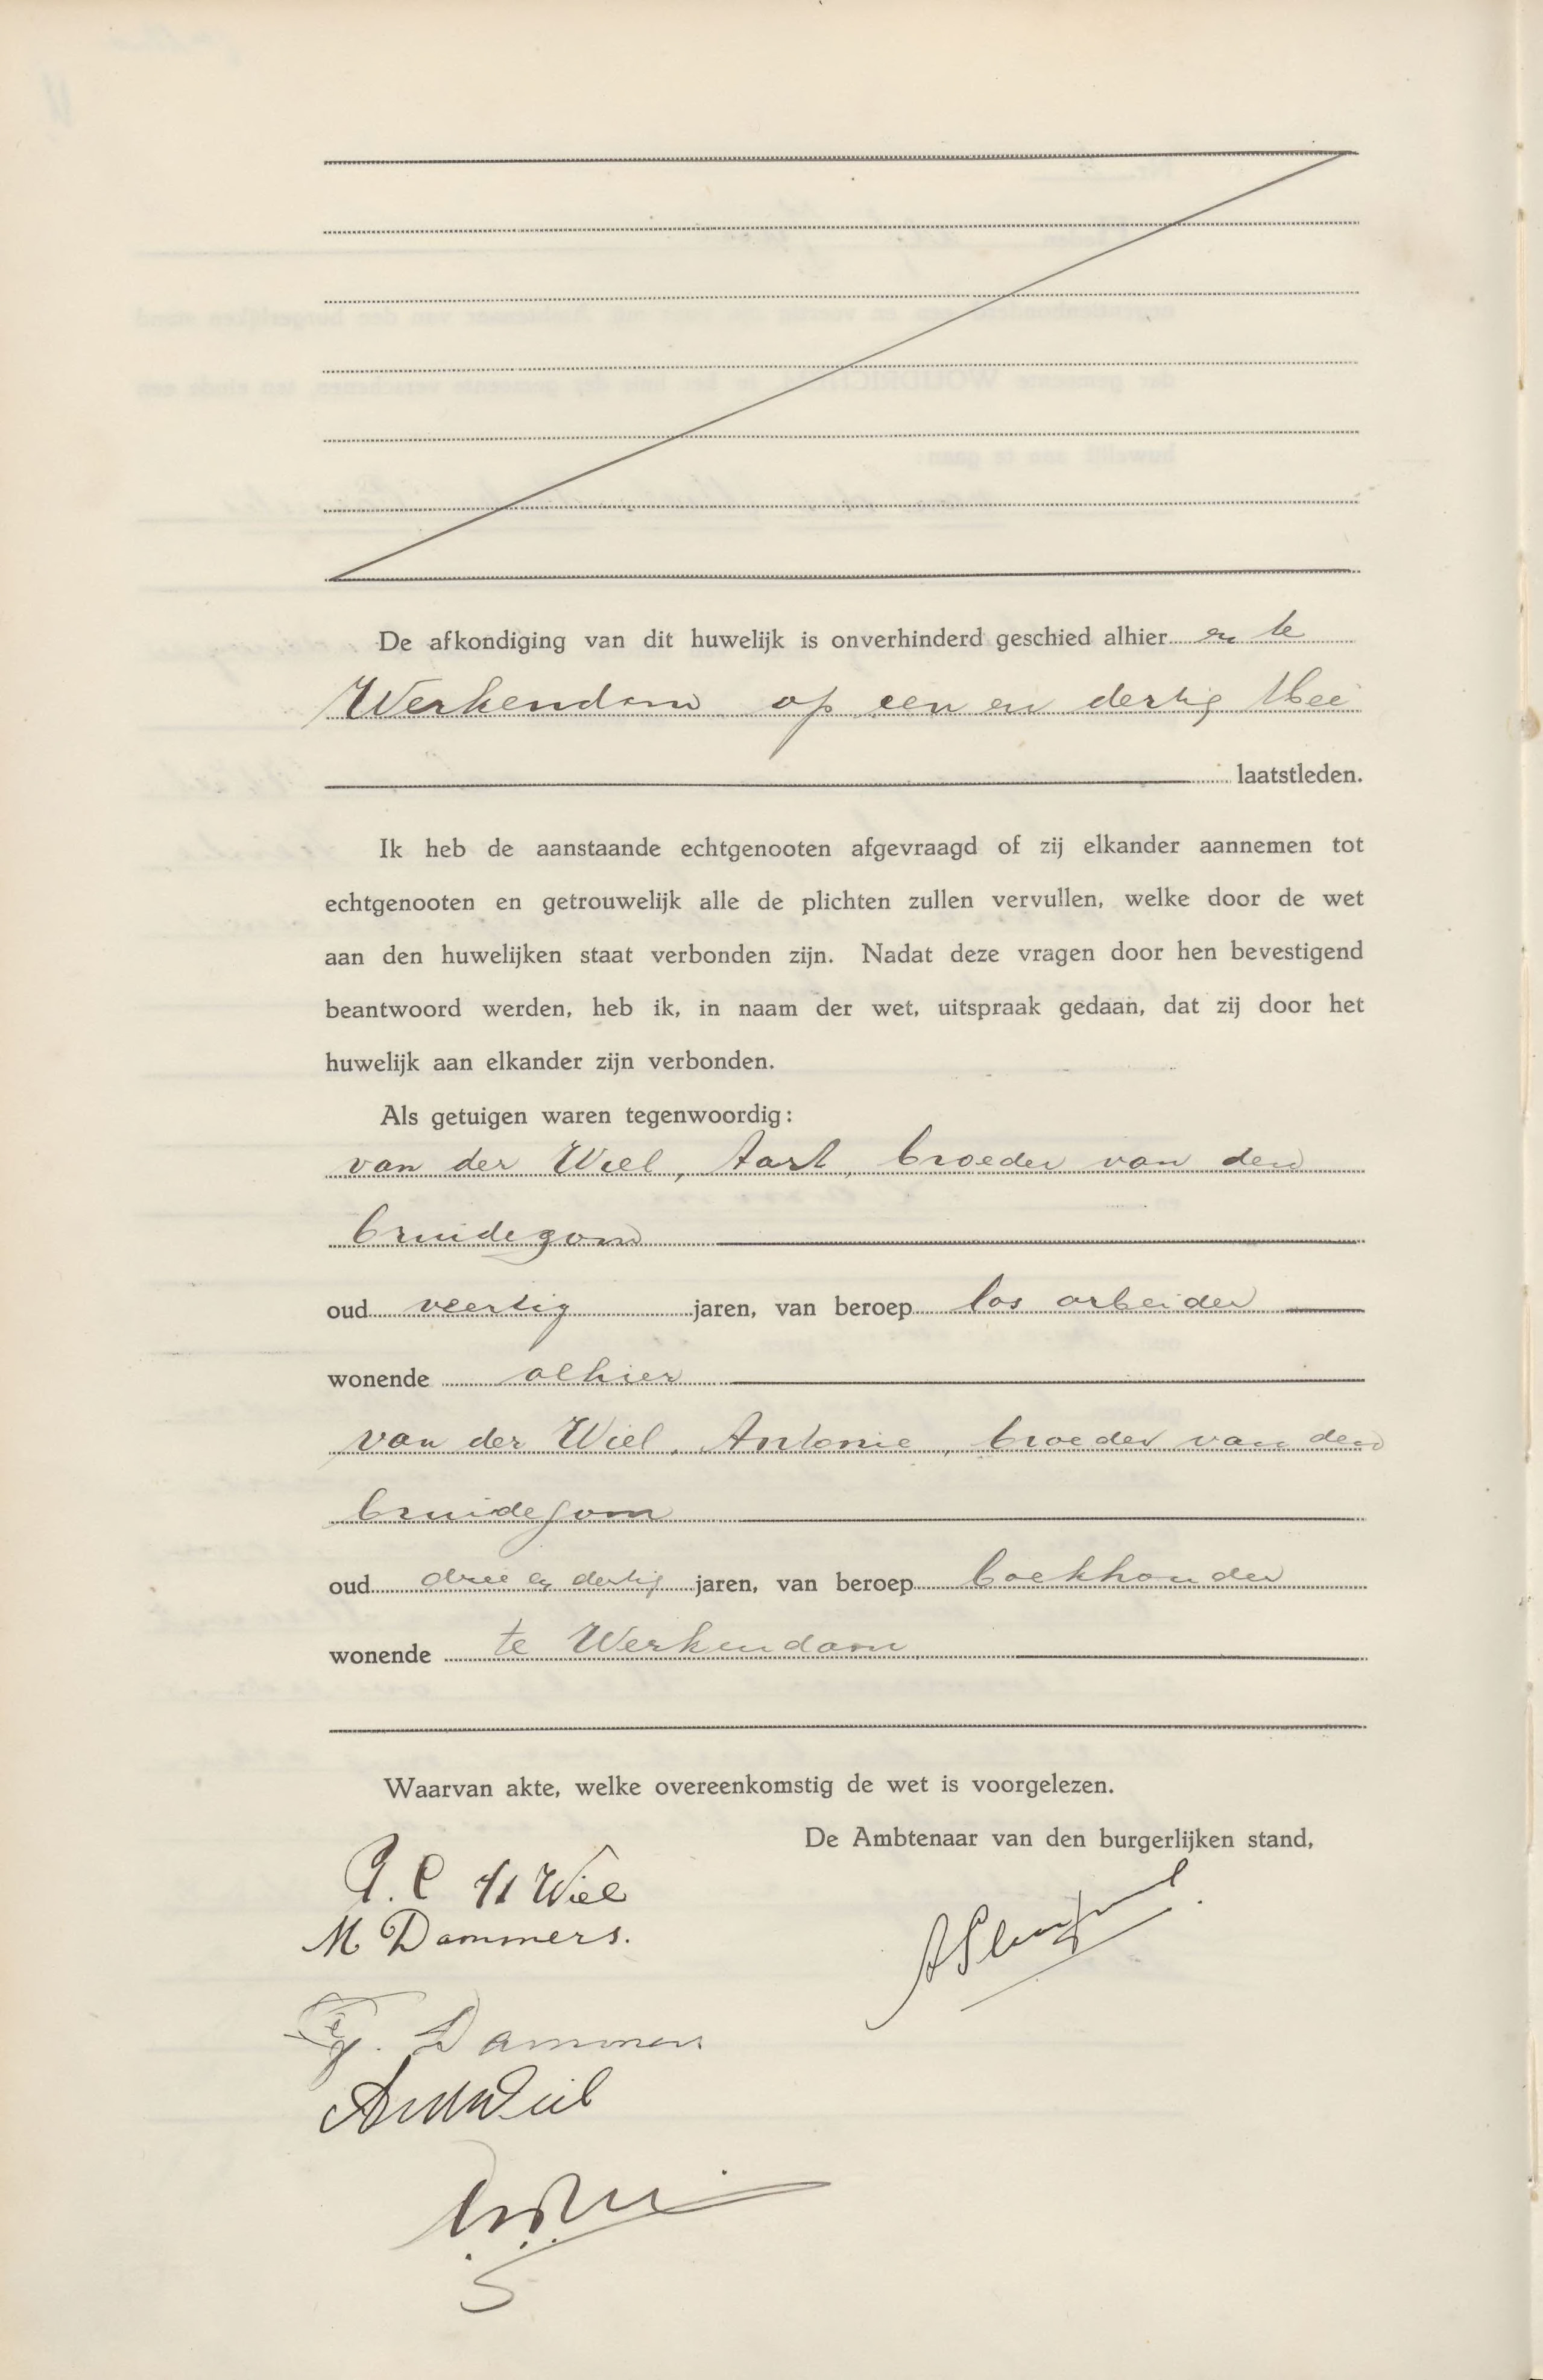 De afkondiging van dit huwelijk is onverhinderd geschied alhier en te
Werkendam op een en dertig Mei
laatstleden.
Ik heb de aanstaande echtgenooten afgevraagd of zij elkander aannemen tot
echtgenooten en getrouwelijk alle de plichten zullen vervullen, welke door de wet
aan den huwelijken staat verbonden zijn. Nadat deze vragen door hen bevestigend
beantwoord werden, heb ik, in naam der wet, uitspraak gedaan, dat zij door het
huwelijk aan elkander zijn verbonden.
Als getuigen waren tegenwoordig:
van der Wiel, Aart, broeder van den
bruidegom
oud veertig jaren, van beroep los arbeider
wonende alhier
van der Wiel, Antonie, broeder van den
bruidegom
oud drie en dertig jaren, van beroep boekhouder
wonende te Werkendam
Waarvan akte, welke overeenkomstig de wet is voorgelezen.
De Ambtenaar van den burgerlijken stand,
Wiel
M Dammers.
Dammers